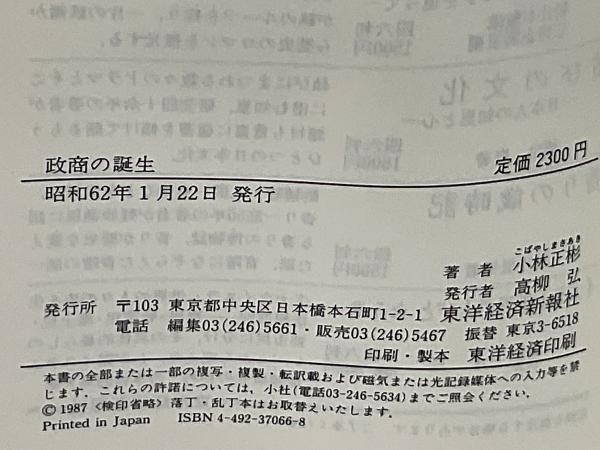 政商の誕生
定価 2300 円
昭和62年1月22日 発行
こばやしまさあき
著 者 小林正彬
発行者 高柳 弘
発行所 〒103 東京都中央区日本橋本石町1-2-1 東洋経済新報社
電話 編集03(246)5661・販売03(246)5467 振替 東京3-6518
印刷・製本 東洋経済印刷
本書の全部または一部の複写・複製・転訳載および磁気または光記録媒体への入力等を禁
じます。これらの許諾については、小社(電話03-246-5634)までご照会ください。
© 1987 〈検印省略〉落丁・乱丁本はお取替えいたします。
Printed in Japan ISBN 4-492-37066-8